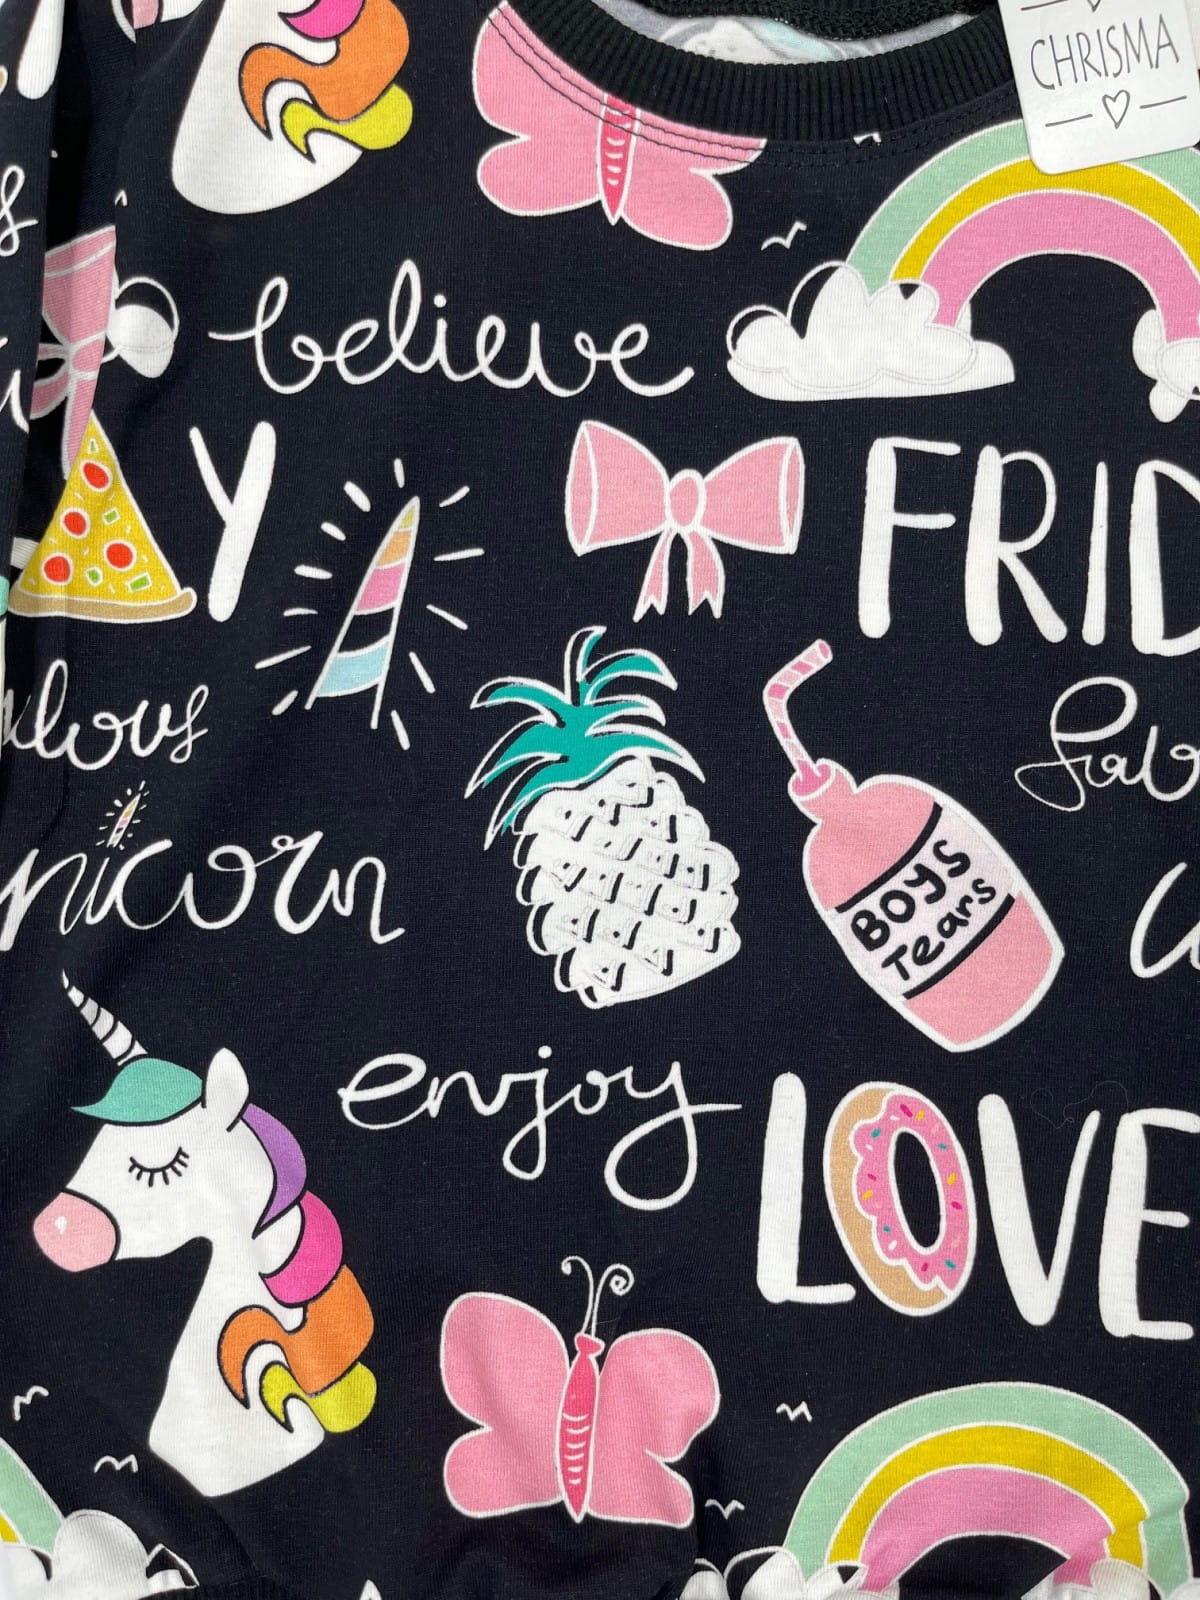 CHRISMA
believe
AY
FRID
ulous
fab
unicorn
BOYS
Tears
enjoy
LOVE